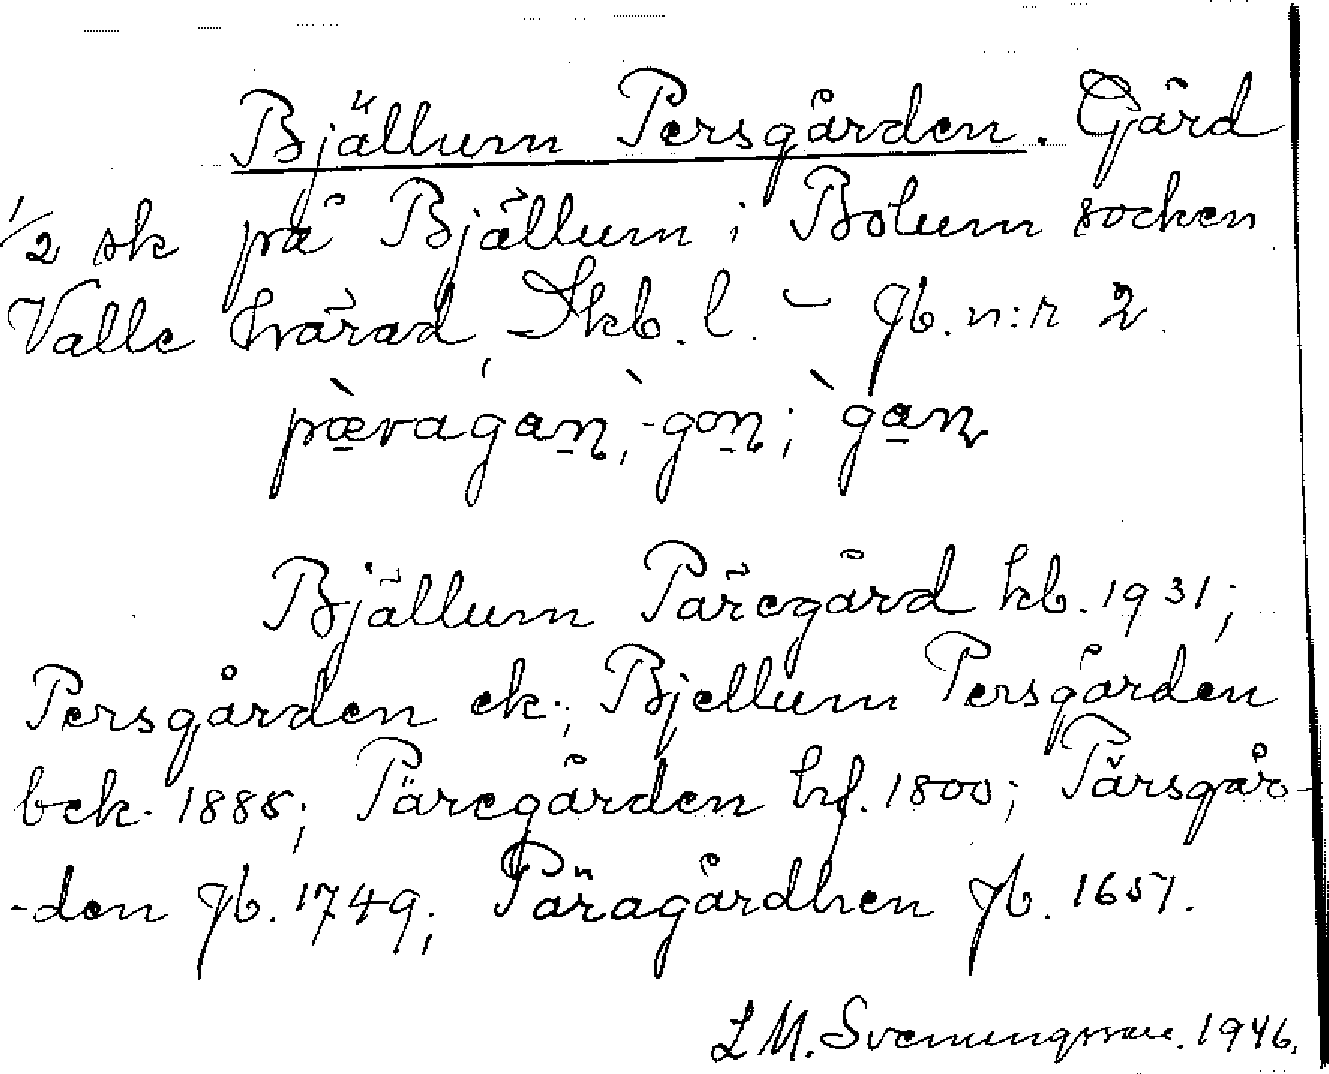 Bjällum Persgården. Gård
1/2 sk på Bjällum i Bolum socken
Valle härad, Skb. l. – Jb. n:r 2.
pæ̀ragan, -gon; gan
Bjällum Päregård kb. 1931;
Persgården ek.; Bjellum Persgården
bek. 1885; Päregården hf. 1800; Pärsgår-
-den jb. 1749; Päragårdhen jb. 1651.
L M. Svenungsson. 1946.